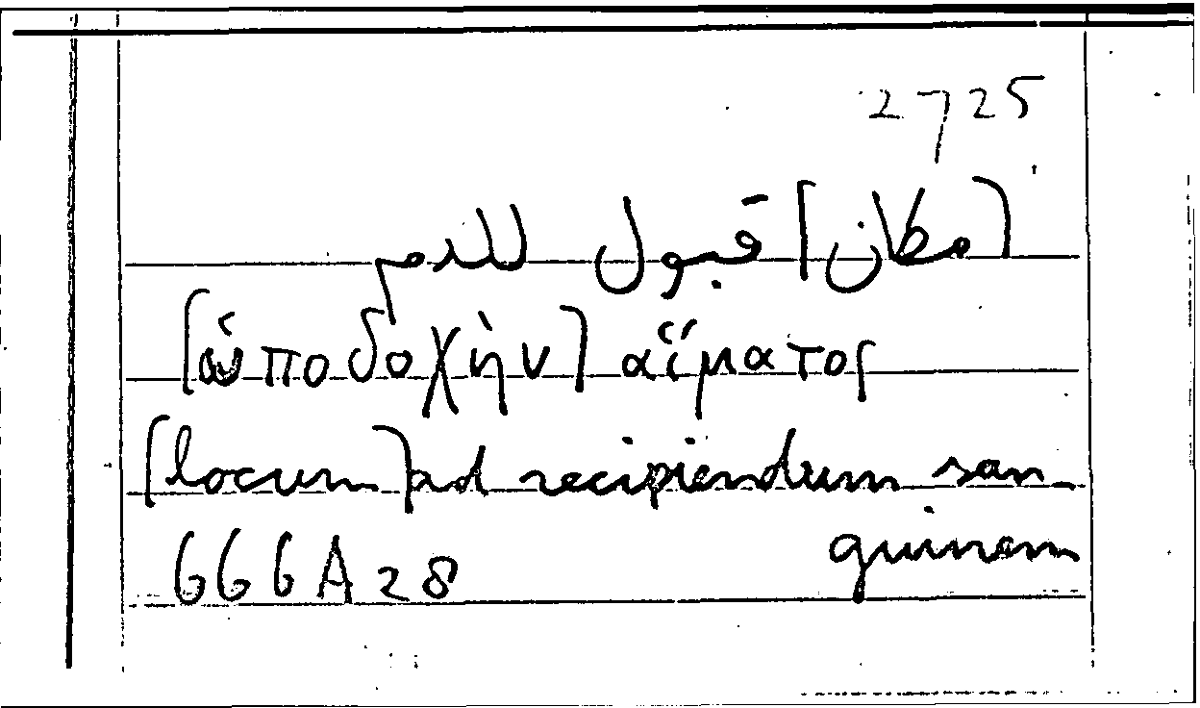 2725
[مكان] قبول للدم
[ὑποδοχὴν] αἵματος
[locum] ad recipiendum san
guinem
666A28